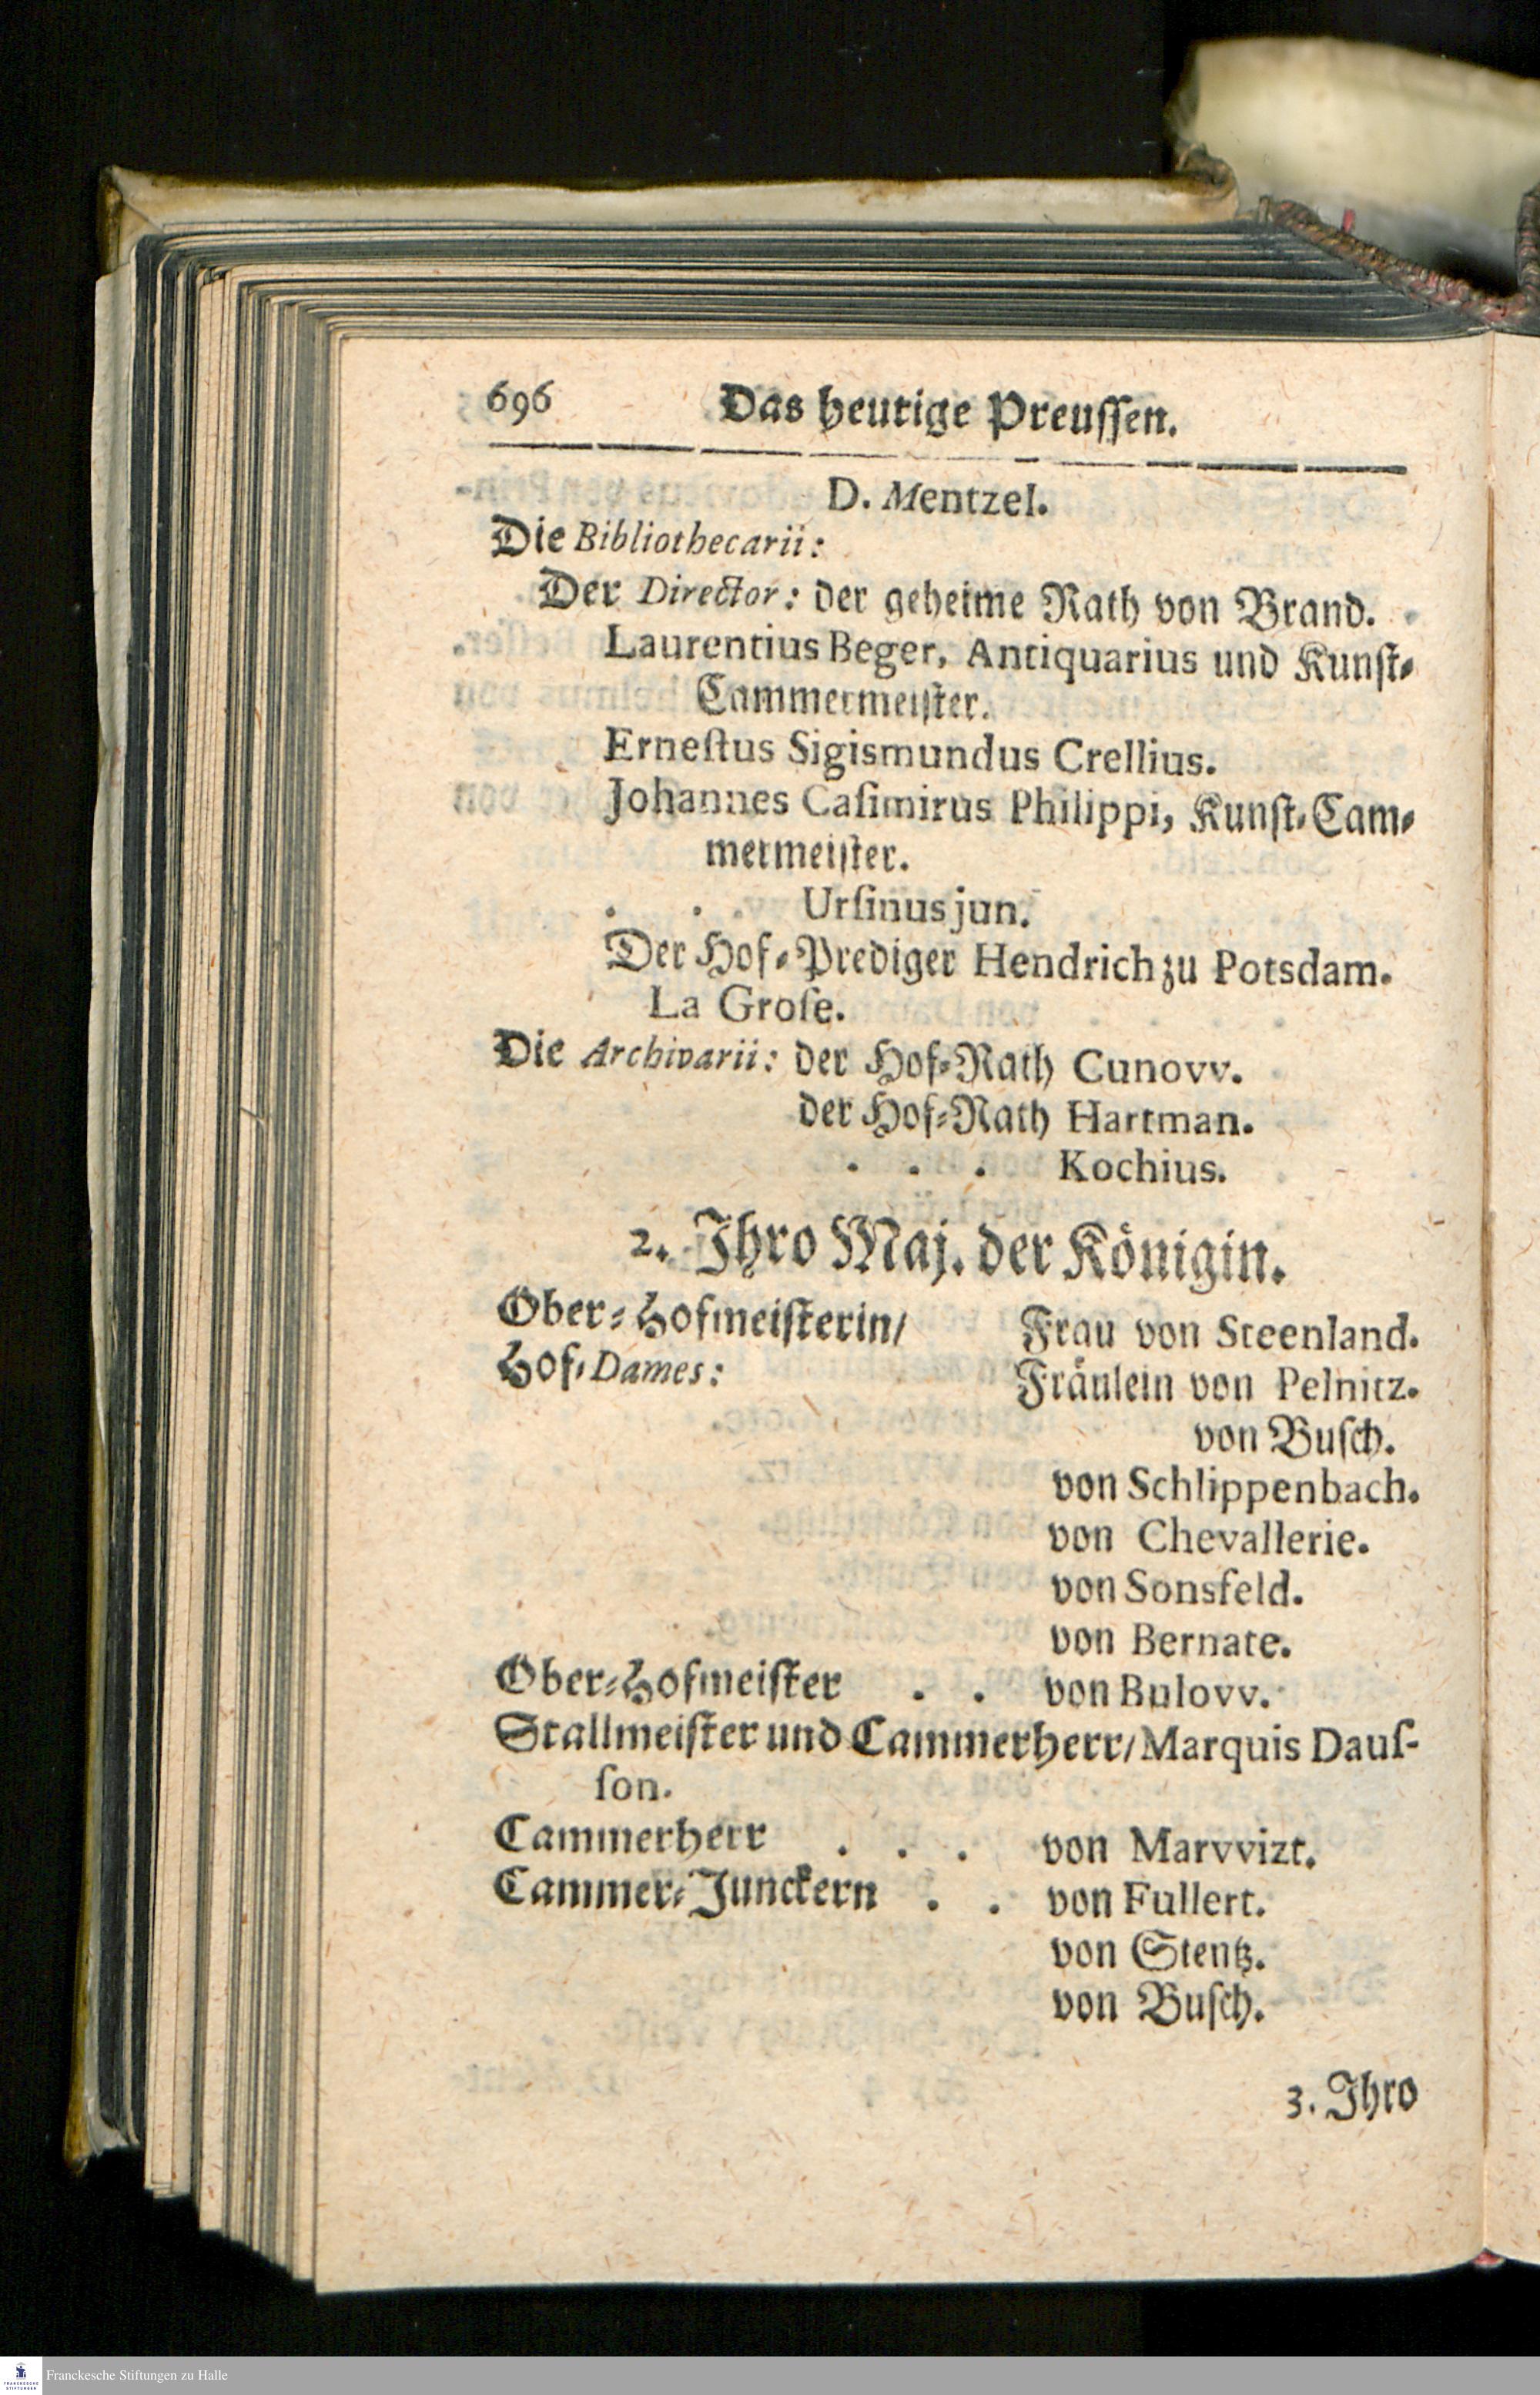 696 Das heutige Preussen.
D. Mentzel.
Die Bibliothecarii:
Der Director: der geheime Rath von Brand.
Laurentius Beger, Antiquarius und Kunst-
Cammermeister.
Ernestus Sigismundus Crellius.
Johannes Casimirus Philippi, Kunst-Cam-
mermeister.
. . . Ursinus jun.
Der Hof-Prediger Hendrich zu Potsdam.
La Grose.
Die Archivarii: der Hof-Rath Cunovv.
der Hof-Rath Hartman.
. . . Kochius.
2. Ihro Maj. der Königin.
Ober-Hofmeisterin/ Frau von Steenland.
Hof-Dames: Fräulein von Pelnitz.
von Busch.
von Schlippenbach.
von Chevallerie.
von Sonsfeld.
von Bernate.
Ober-Hofmeister . . von Bulovv.
Stallmeister und Cammerherr/ Marquis Daus-
son.
Cammerherr . . . von Marvvizt.
Cammer-Junckern . . von Fullert.
von Stentz.
von Busch.
3. Ihro
FRANCKESCHE STIFTUNGEN
Franckesche Stiftungen zu Halle